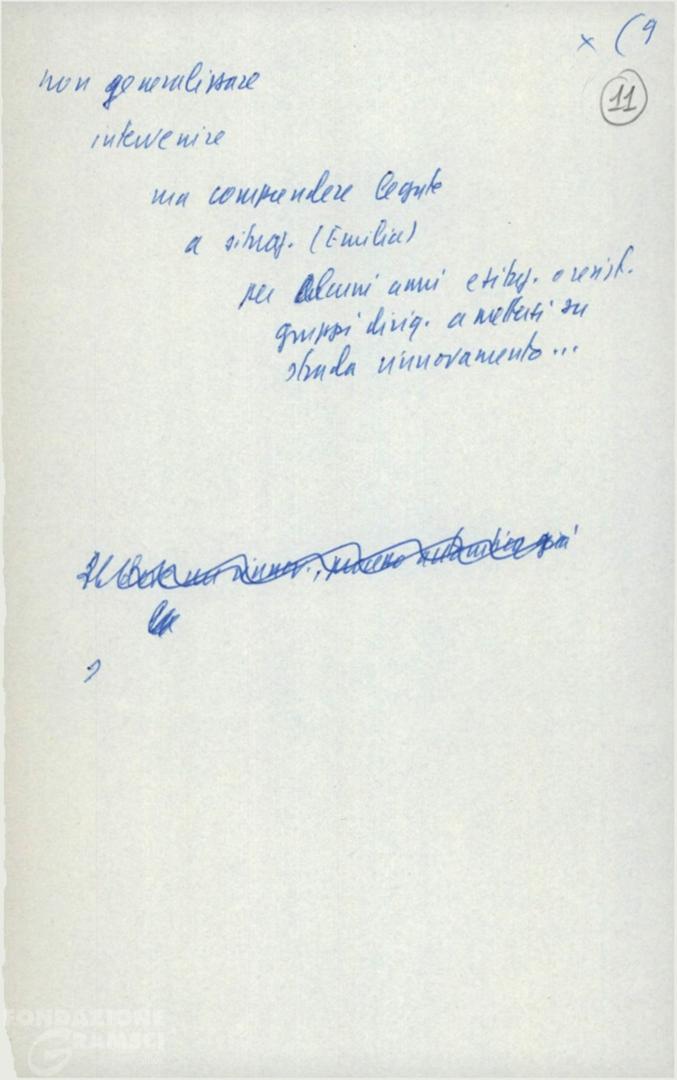 x (9
11
non generalizzare
intervenire
ma comprendere legate
a situaz. (Emilia)
per alcuni anni esitaz. o resist.
gruppi dirig. a mettersi su
strada rinnovamento...
FONDAZIONE
GRAMSCI